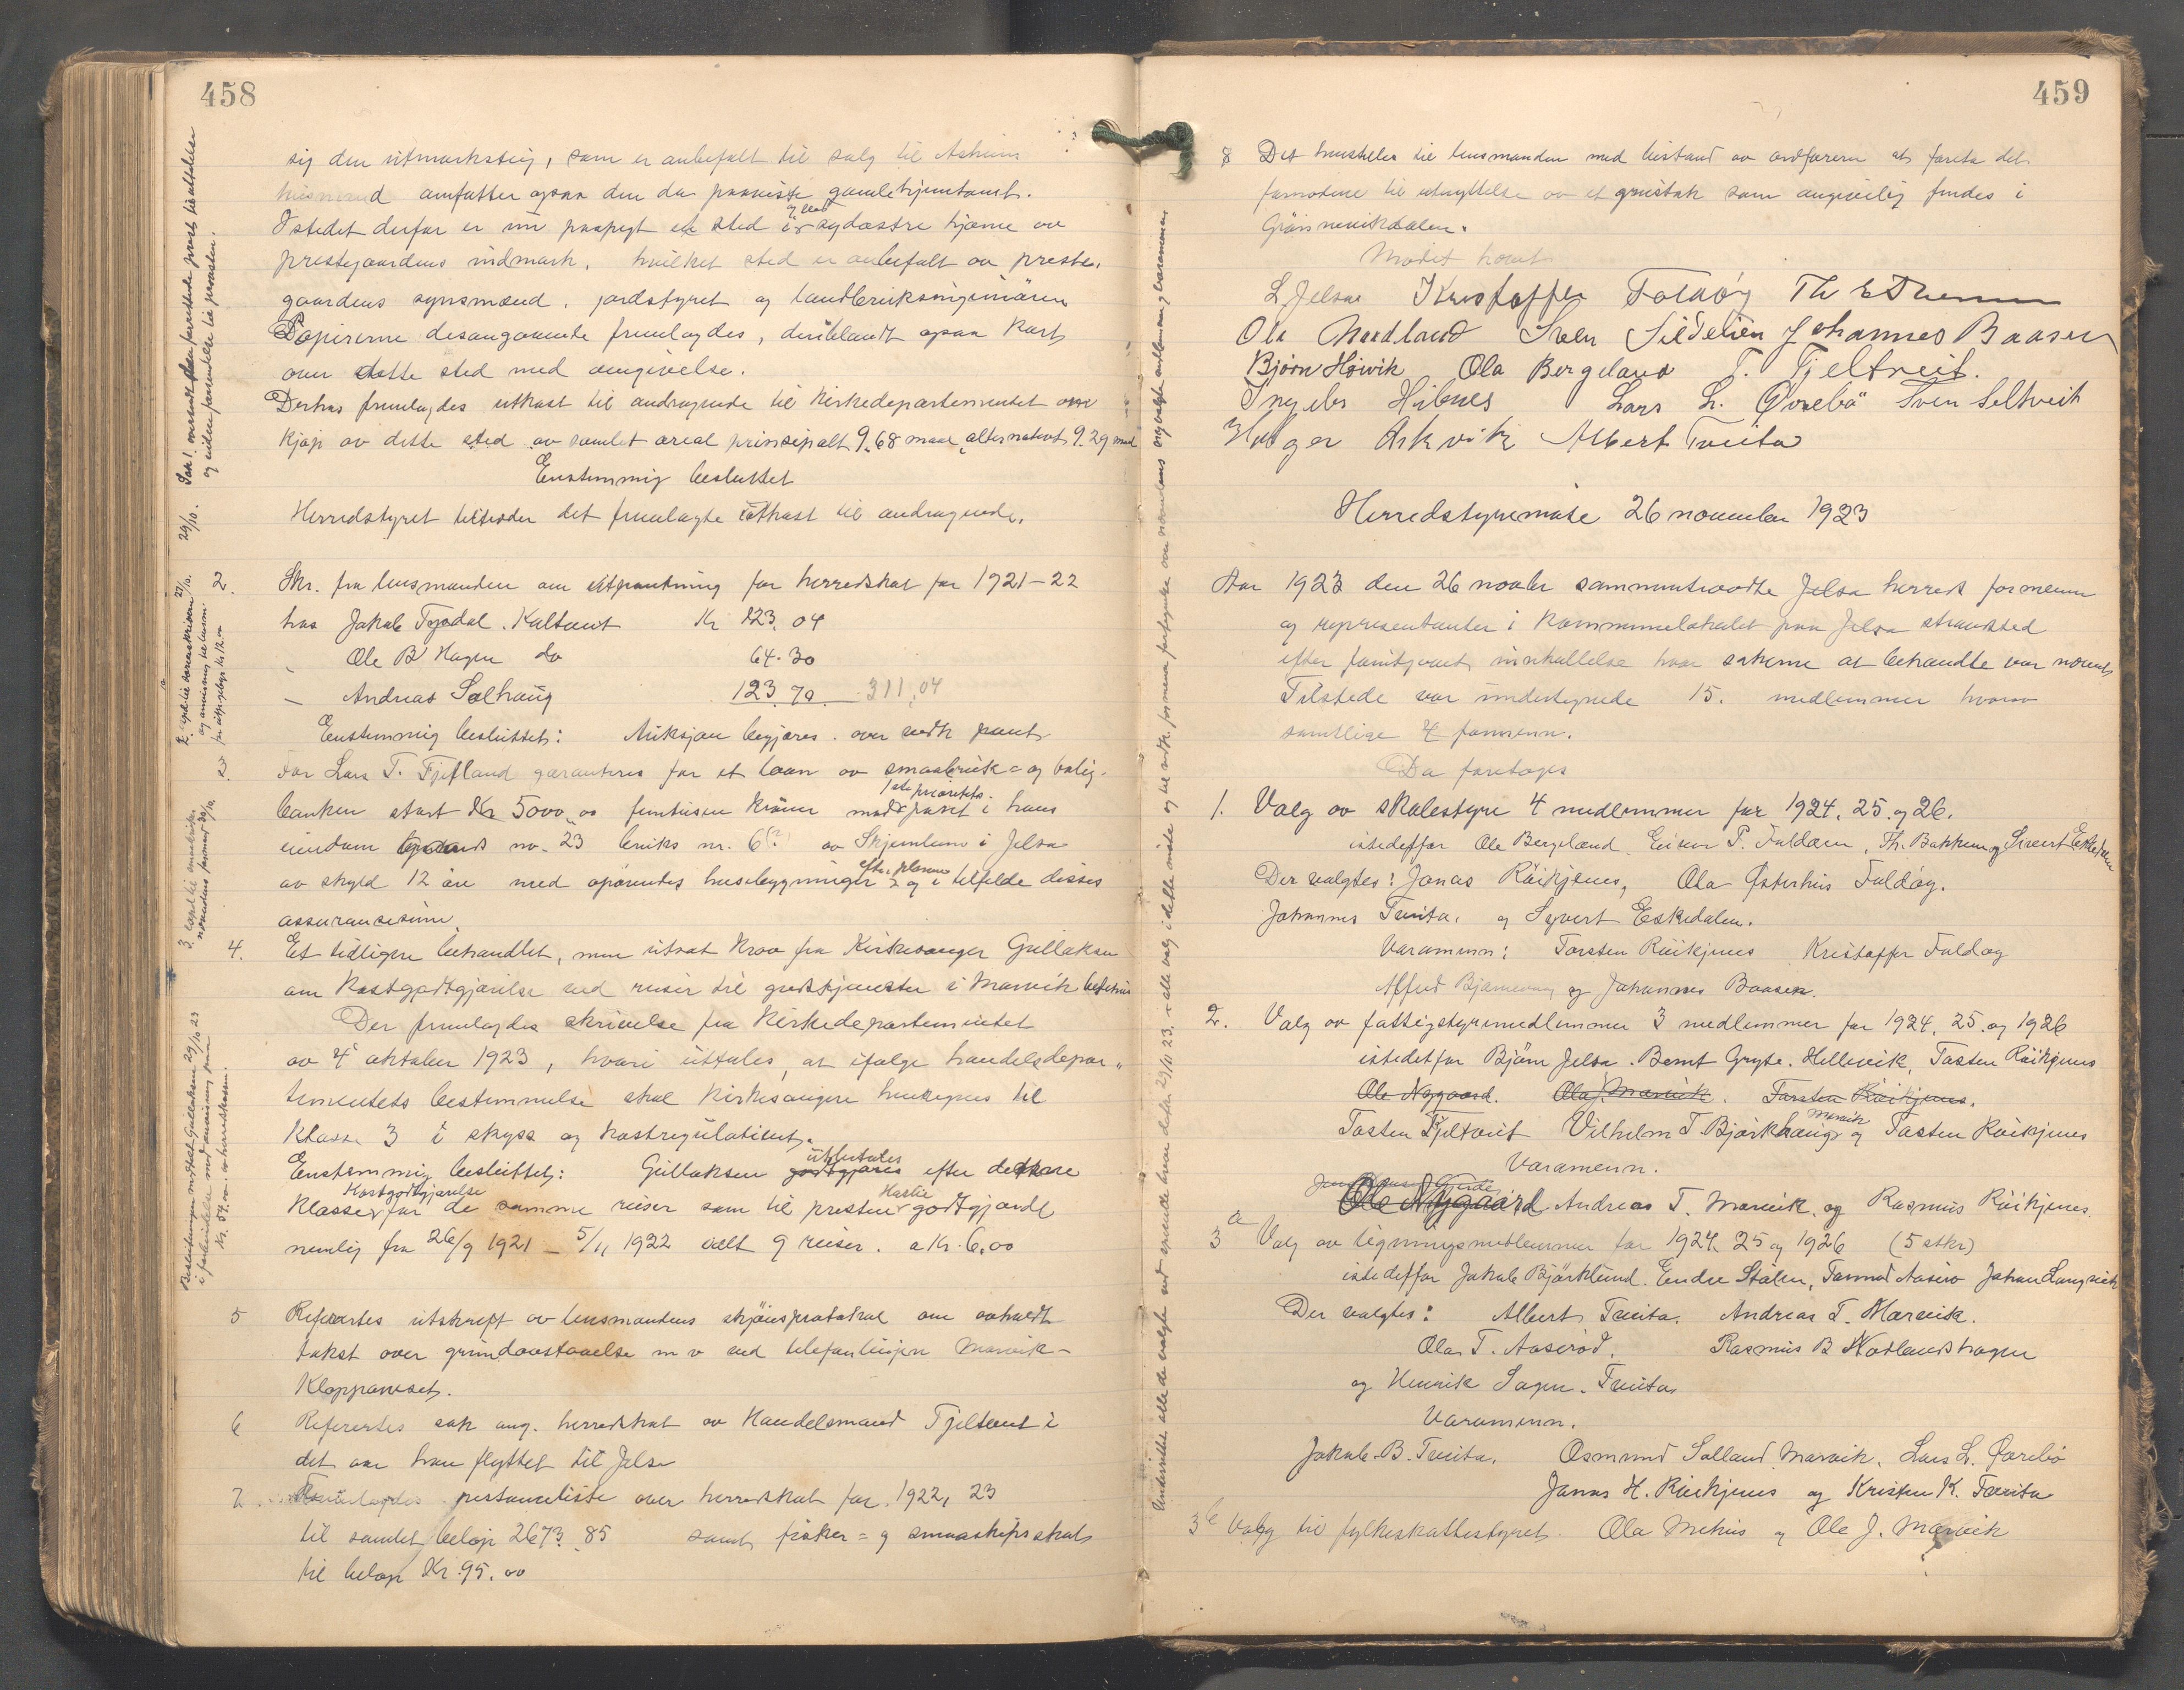 458
sig den utmarksteig, som er anbefalt til salg til
amfatter ogsaa den da paaviste gamle hjemtomt.
I stedet derfor er nu paapegt et sted i sydøstre hjørne av
prestegaardens indmark, hvilket sted er anbefalt av preste-
gaardens synsmænd, jordstyret og landbruksingeniøren
Papirerne desangaaende fremlagdes, deriblandt ogsaa kart
over dette sted med angivelse.
Derhos fremlagdes utkast til andragende til Kirkedepartementet om
kjøp av dette sted av samlet areal prinsipalt 9.68 maal, alternativt 9.29 maal
Enstemmig besluttet
Herredstyret tiltræder det fremlagte utkast til andragende.
2. Skr. fra lensmanden om utpantning for herredskat for 1921-22
hos Jakob Tysdal. Kaltveit Kr 123.04
" Ole B Hagen do 64.30
" Andreas Solhaug 123.70 311,04
Enstemmig besluttet: Auksjon begjæres over nedk pant
3. For Lars T. Fjetland garanteres for et laan av smaabruk- og bolig-
banken stort Kr 5000,00 femtusen kroner mot 1ste prioritets pant i hans
eiendom gaards no. 23 bruks nr. 6(?) av Skjemlum i Jelsa
av skyld 12 øre med opførendes husebygninger efter planen og i tilfelde disses
assuransesum
4. Et tidligere behandlet, men utsat krav fra Kirkesanger Gullaksen
om kostgodtgjørelse ved reiser til gudstjenester i Marvik bedehus
Der fremlagdes skrivelse fra Kirkedepartementet
av 4 oktober 1923, hvori uttales, at ifølge handelsdepar-
tementets bestemmelse skal Kirkesangere henregnes til
Klasse 3 i skyss og kostregulativet.
Enstemmig besluttet: Gullaksen utbetales godtgjøres efter denne
Klasse Kostgodtgjørelse for de samme reiser som til presten Hærlie godtgjordt
nemlig fra 26/9 1921 - 5/11 1922 ialt 9 reiser. a Kr. 6.00
5 Refertes utskrift av lensmandens skjønsprotokol om avholdt
takst over grundavstaaelse m v ved telefonlinjen Marvik-
Kloppaneset.
6 Refertes sak ang. herredskat av Handelsmand Tjeltveit i
det aar han flyttet til Jelsa
7. Fremlagdes restanseliste over herredskat for 1922, 23
til samlet beløp 2673.85 samt fisker- og smaaskipsskat
til beløp Kr. 95.00
459
8 Det henstilles til lensmanden med bistand av ordføreren at foreta det
fornødne til utnyttelse av et grustak som angivelig findes i
Grønnevikdalen.
Møtet hævt
L. Jelsa Kristoffer Foldøy
Ola Nordland Sven Sildelien Johannes Baasen
Bjørn Høivik Ola Bergeland T. Tjeltveit.
Ingebr Hebnes Lars L. Øvrebø Sven Seltveit
Holger Askvik Albert Tveita
Herredstyremøte 26 november 1923
Aar 1923 den 26 novbr sammentraadte Jelsa herreds formenn
og representanter i Kommunelokalet paa Jelsa strandsted
efter foregaaende innkallelse hvor sakerne at behandle var nævnt
Tilstede var undertegnede 15. medlemmer hvorav
samtlige 4 formenn.
Da foretoges
1. Valg av skolestyre 4 medlemmer for 1924. 25. og 26.
istedetfor Ole Bergeland, Einar T. Foldøen, Th. Bakken og Sivert Eskedalen
Der valgtes: Jonas Røikjenes, Ola Østerhus Foldøy.
Johannes Tveita. og Syvert Eskedalen.
Varamenn: Torsten Røikjenes Kristoffer Foldøy
Alfred Bjørnevaag og Johannes Baasen.
2. Valg av fattigstyremedlemmer 3 medlemmer for 1924, 25. og 1926
istedetfor Bjørn Jelsa. Bernt Gryte. Hellevik, Tosten Røikjenes
Ole Nygaard. Ola Marvik. Torsten Røikjenes.
Tosten Tjeltveit Vilhelm T Bjørkhaug Marvik og Tosten Røikjenes
Varamenn.
Ole Nygaard. Andreas T. Marvik. og Rasmus Røikjenes.
3 a Valg av ligningsmedlemmer for 1924. 25 og 1926 (5 stkr)
istedetfor Jakob Bjørklund. Endre Stølen, Tormod Aaserø Johan Langvik
Der valgtes: Albert Tveita. Andreas T. Marvik.
Ola T. Aaserød. Rasmus B Nordlandshagen
og Henrik Sagen. Tveita
Varamenn.
Jakob B. Tveita. Osmund Solland Marvik. Lars L. Øvrebø
Jonas H. Røikjenes og Kristen K. Tveita
3 b Valg til fylkeskattestyret. Ola Mehus og Ole J. Marvik